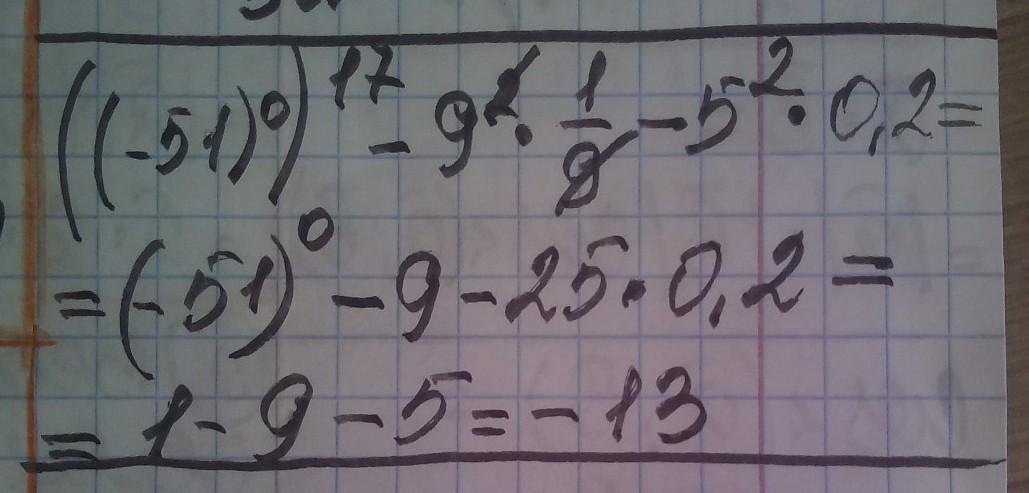 ((-51)⁰)¹⁷ - 9² · 1/9 - 5² · 0,2 =
= (-51)⁰ - 9 - 25 · 0,2 =
= 1 - 9 - 5 = - 13